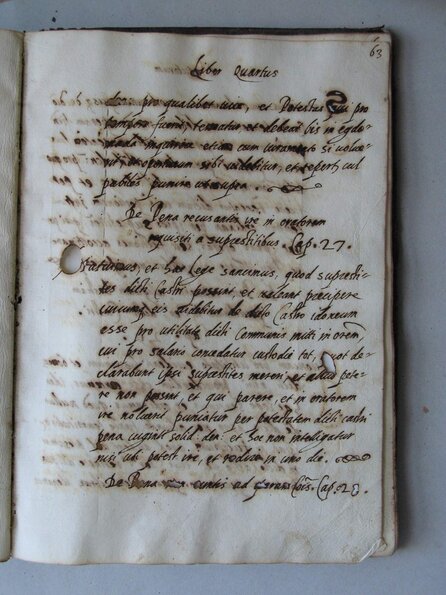 63
Liber Quartus
pro qualibet vice, et Potestas qui pro
tempore fuerit, teneatur et debeat bis in egdo-
mada inquirere etiam cum iuramento si
sibi videbitur, et repertos cul
pabiles punire ut supra.
De Pena recusantis ire in oratorem
requisiti a suprestitibus. Cap. 27.
Statuimus, et hac lege sancimus, quod suprestit-
tes dicti Castri possint, et valeant precipere
cuicumque eis videbitur de dicto Castro idoneum
esse pro utilitate dicti Communis mitti in orem,
cui pro salario concedatur custodie tot, quot de-
clarabunt ipsi suprestites mereri, et aliud pete-
re non possint, et qui parere, et in oratorem
ire noluerit puniatur per potestatem dicti castri
pena viginti solid. den. et hoc non intelligatur
nisi ubi potest ire, et redire in uno die.
De Pena euntis ad Cap. 28.